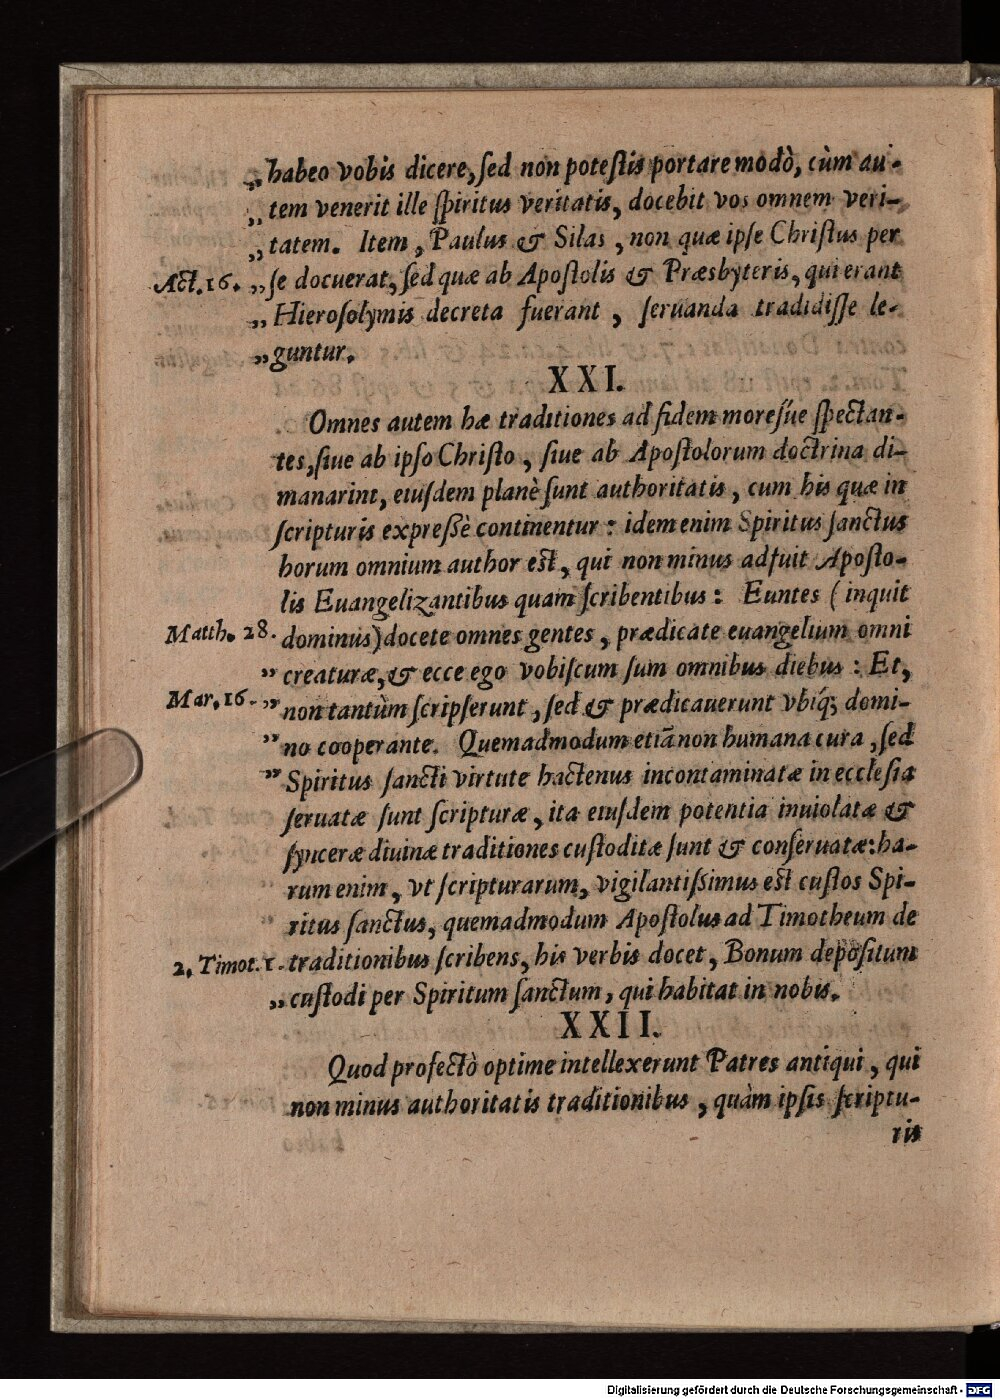 „habeo vobis dicere, ſed non poteſtis portare modò, cùm au-
„tem venerit ille ſpiritus veritatis, docebit vos omnem veri-
„tatem. Item, Paulus & Silas, non quæ ipſe Chriſtus per
Act. 16. „ſe docuerat, ſed quæ ab Apoſtolis & Præsbyteris, qui erant
„Hieroſolymis decreta fuerant, ſeruanda tradidiſſe le-
„guntur.
XXI.
Omnes autem hæ traditiones ad fidem moreſúe ſpectan-
tes, ſiue ab ipſo Chriſto, ſiue ab Apoſtolorum doctrina di-
manarint, eiuſdem planè ſunt authoritatis, cum his quæ in
ſcripturis expreßè continentur: idem enim Spiritus ſanctus
horum omnium author eſt, qui non minus adfuit Apoſto-
lis Euangelizantibus quam ſcribentibus: Euntes (inquit
Matth. 28. dominus) docete omnes gentes, prædicate euangelium omni
„creaturæ, & ecce ego vobiſcum ſum omnibus diebus: Et,
Mar. 16. „non tantùm ſcripſerunt, ſed & prædicauerunt vbiq́; domi-
„no cooperante. Quemadmodum etiā non humana cura, ſed
„Spiritus ſancti virtute hactenus incontaminatæ in eccleſia
ſeruatæ ſunt ſcripturæ, ita eiuſdem potentia inuiolatæ &
ſynceræ diuinæ traditiones cuſtoditæ ſunt & conſeruatæ: ha-
rum enim, vt ſcripturarum, vigilantißimus eſt cuſtos Spi-
ritus ſanctus, quemadmodum Apoſtolus ad Timotheum de
2. Timot. 1. traditionibus ſcribens, his verbis docet, Bonum depoſitum
„cuſtodi per Spiritum ſanctum, qui habitat in nobis.
XXII.
Quod profectò optime intellexerunt Patres antiqui, qui
non minus authoritatis traditionibus, quàm ipſis ſcriptu-
ris
Digitalisierung gefördert durch die Deutsche Forschungsgemeinschaft - DFG